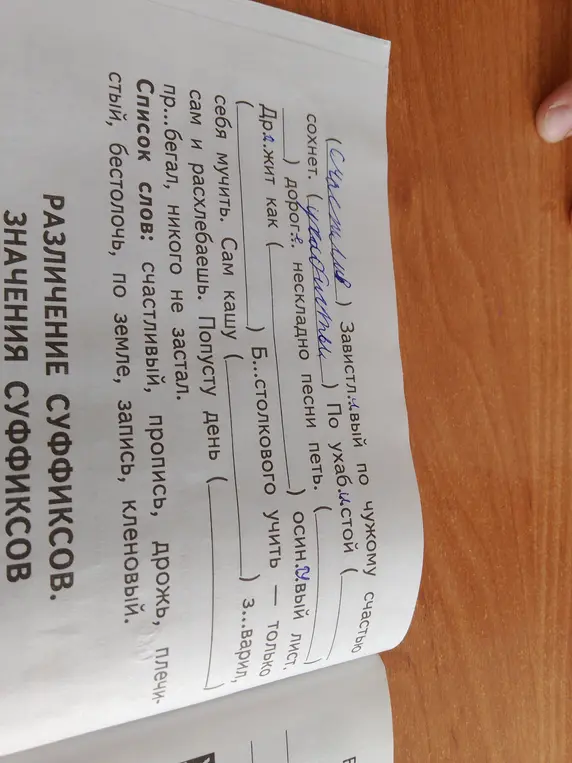 (счастлив) Завистл.и.вый по чужому счастью
сохнет. ( ) По ухаб.и.стой (
) дорог.е. нескладно песни петь. ( )
Др...жит как ( ) осин...вый лист.
( ) Б...столкового учить — только
себя мучить. Сам кашу ( ) з...варил,
сам и расхлебаешь. Попусту день ( )
пр...бегал, никого не застал.
Список слов: счастливый, пропись, дрожь, плечи-
стый, бестолочь, по земле, запись, кленовый.
РАЗЛИЧЕНИЕ СУФФИКСОВ.
ЗНАЧЕНИЯ СУФФИКСОВ